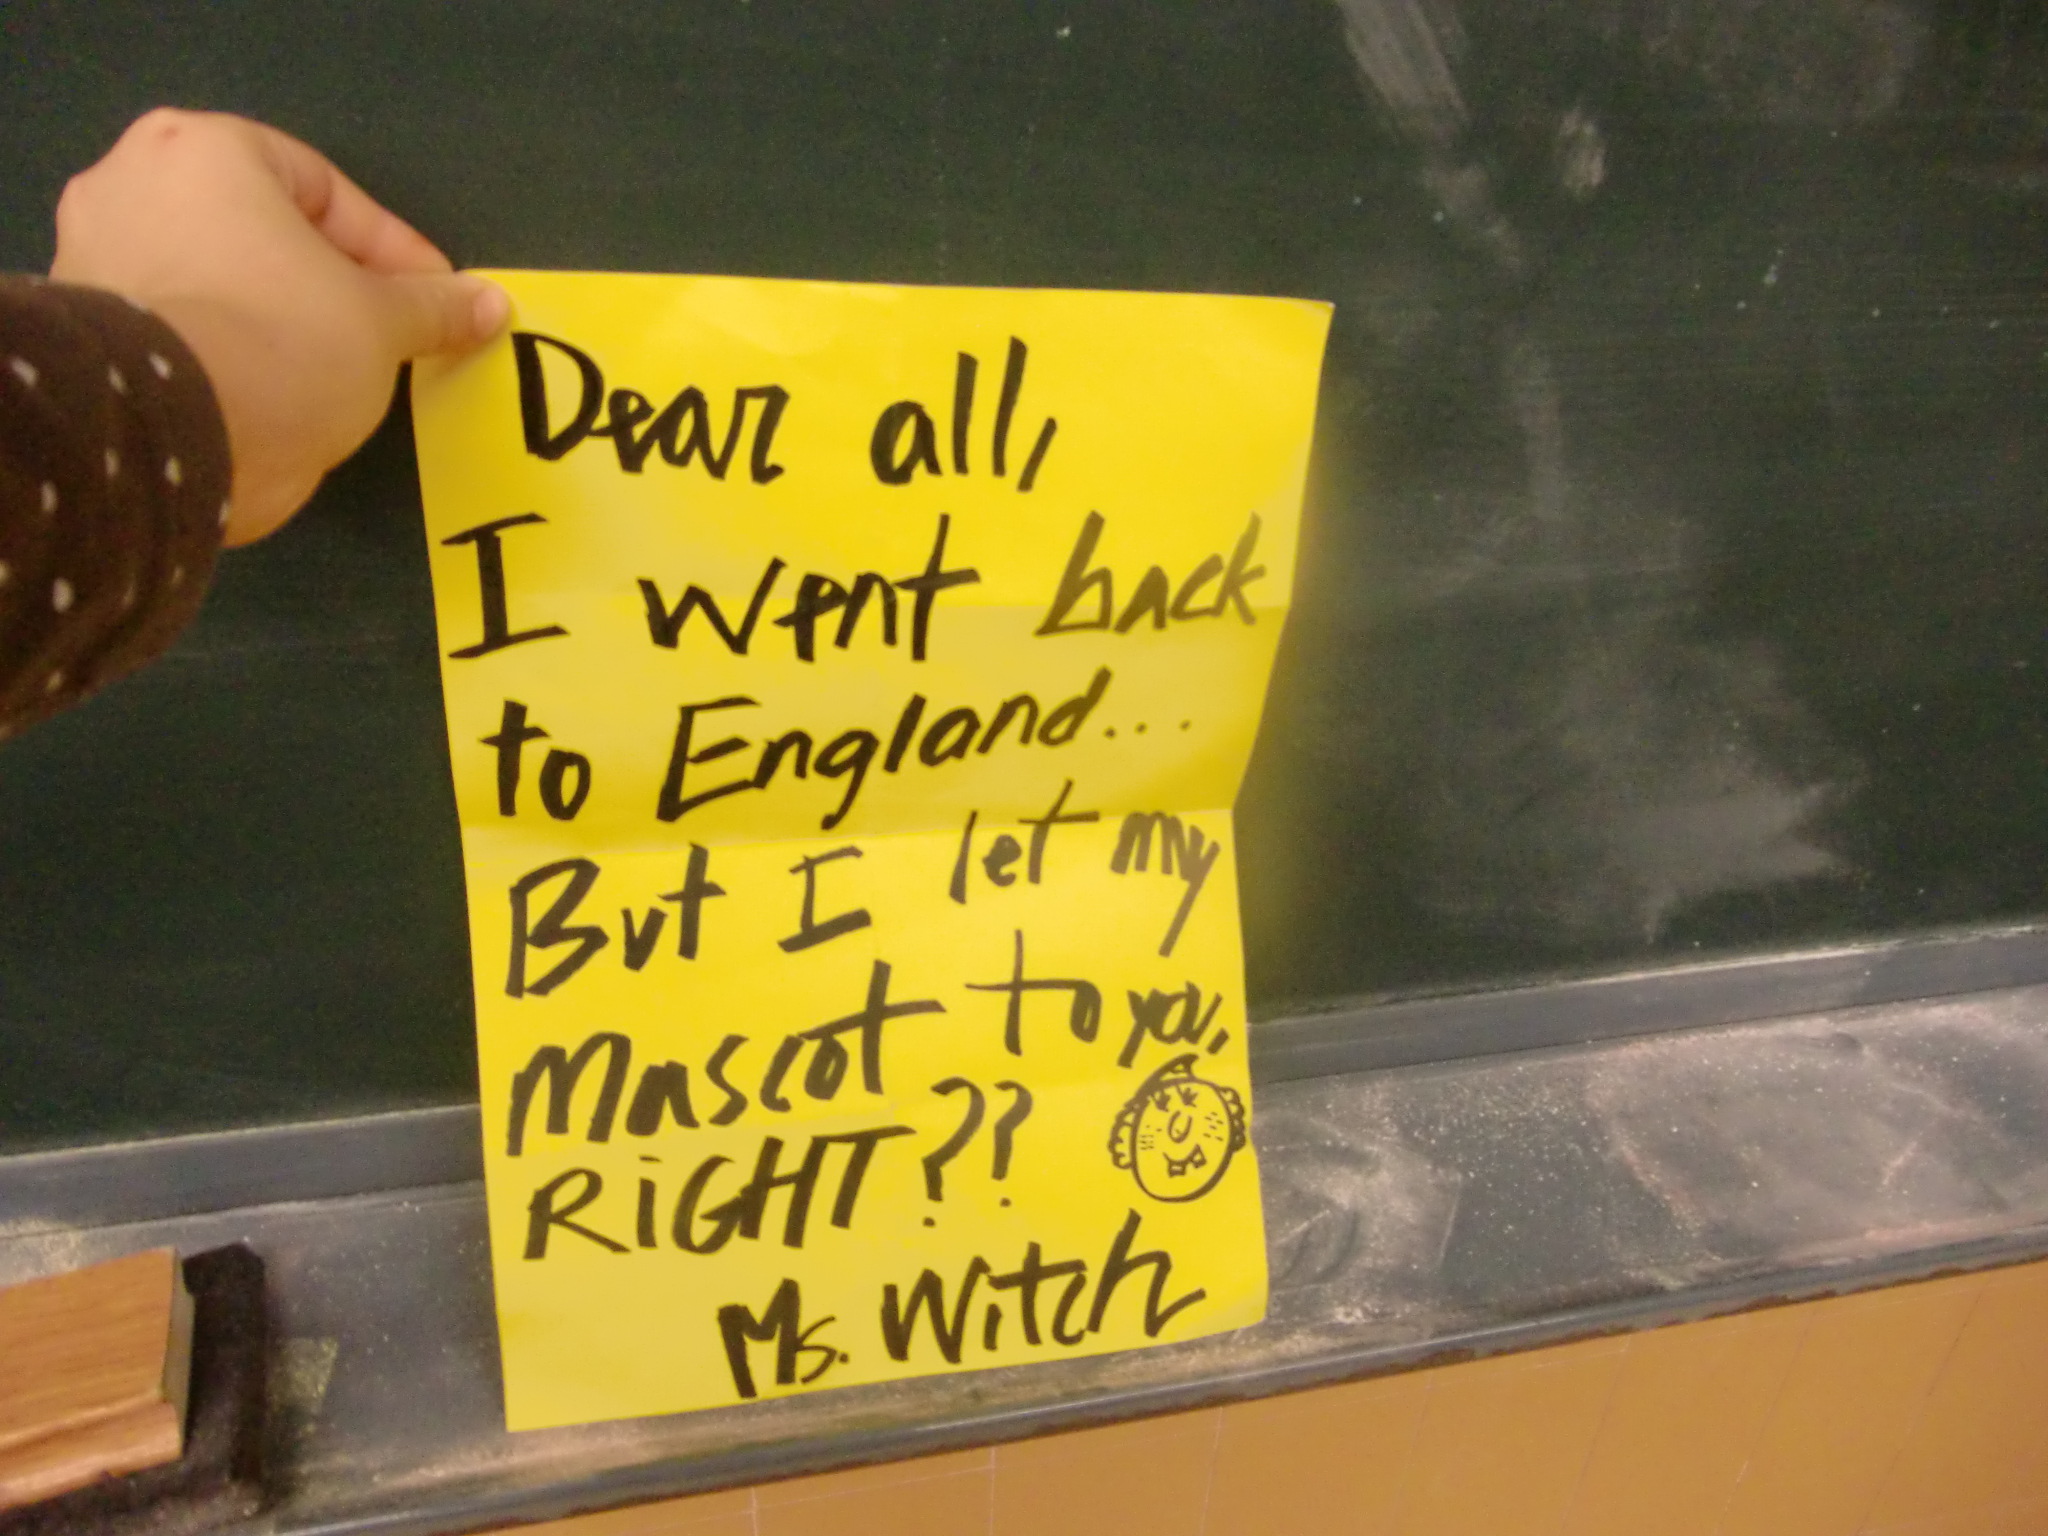 Dear all,
I went back
to England...
But I let my
Mascot to you,
RiGHT??
Ms. Witch